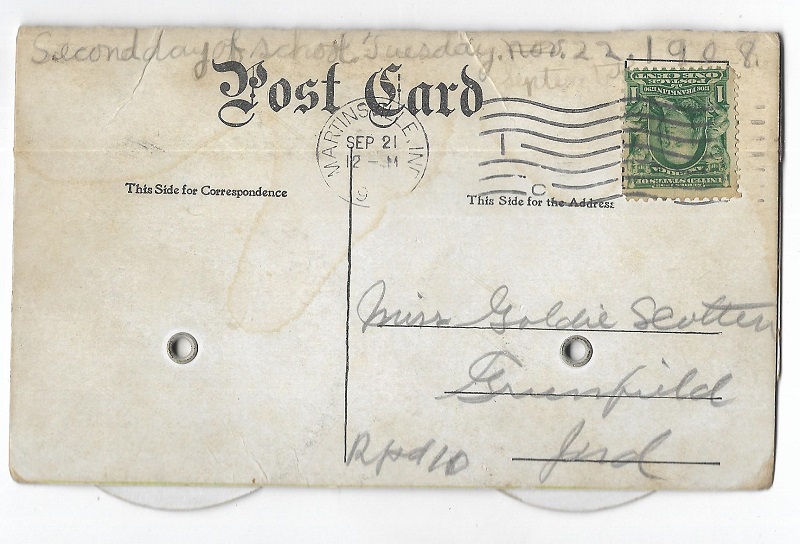 Second day of school. Tuesday. Nov. 22, 1908.
Septem
Post Card
MARTINSVILLE, IND.
SEP 21
12 - M
19
1
C
This Side for Correspondence
This Side for the Address
1 ONE CENT 1
OF POSTAGE
BOS. FRANKLIN 1790
UNITED STATES OF AMERICA
Miss Goldie Scotten
Greenfield
Ind
R f d 10